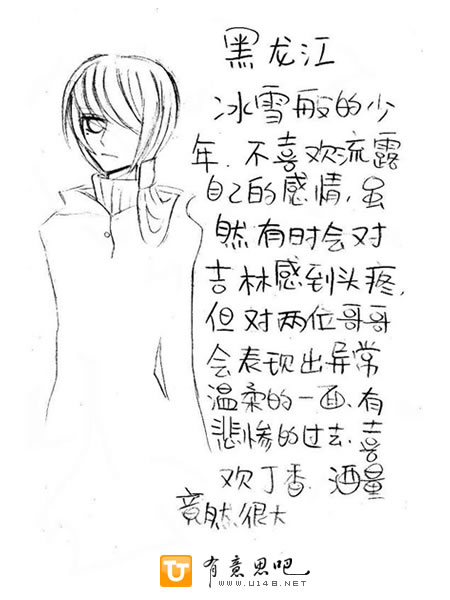 黑龙江
冰雪般的少
年.不喜欢流露
自己的感情,虽
然有时会对
吉林感到头疼,
但对两位哥哥
会表现出异常
温柔的一面、有
悲惨的过去.喜
欢丁香.酒量
竟然很大
有意思吧
WWW.U148.NET